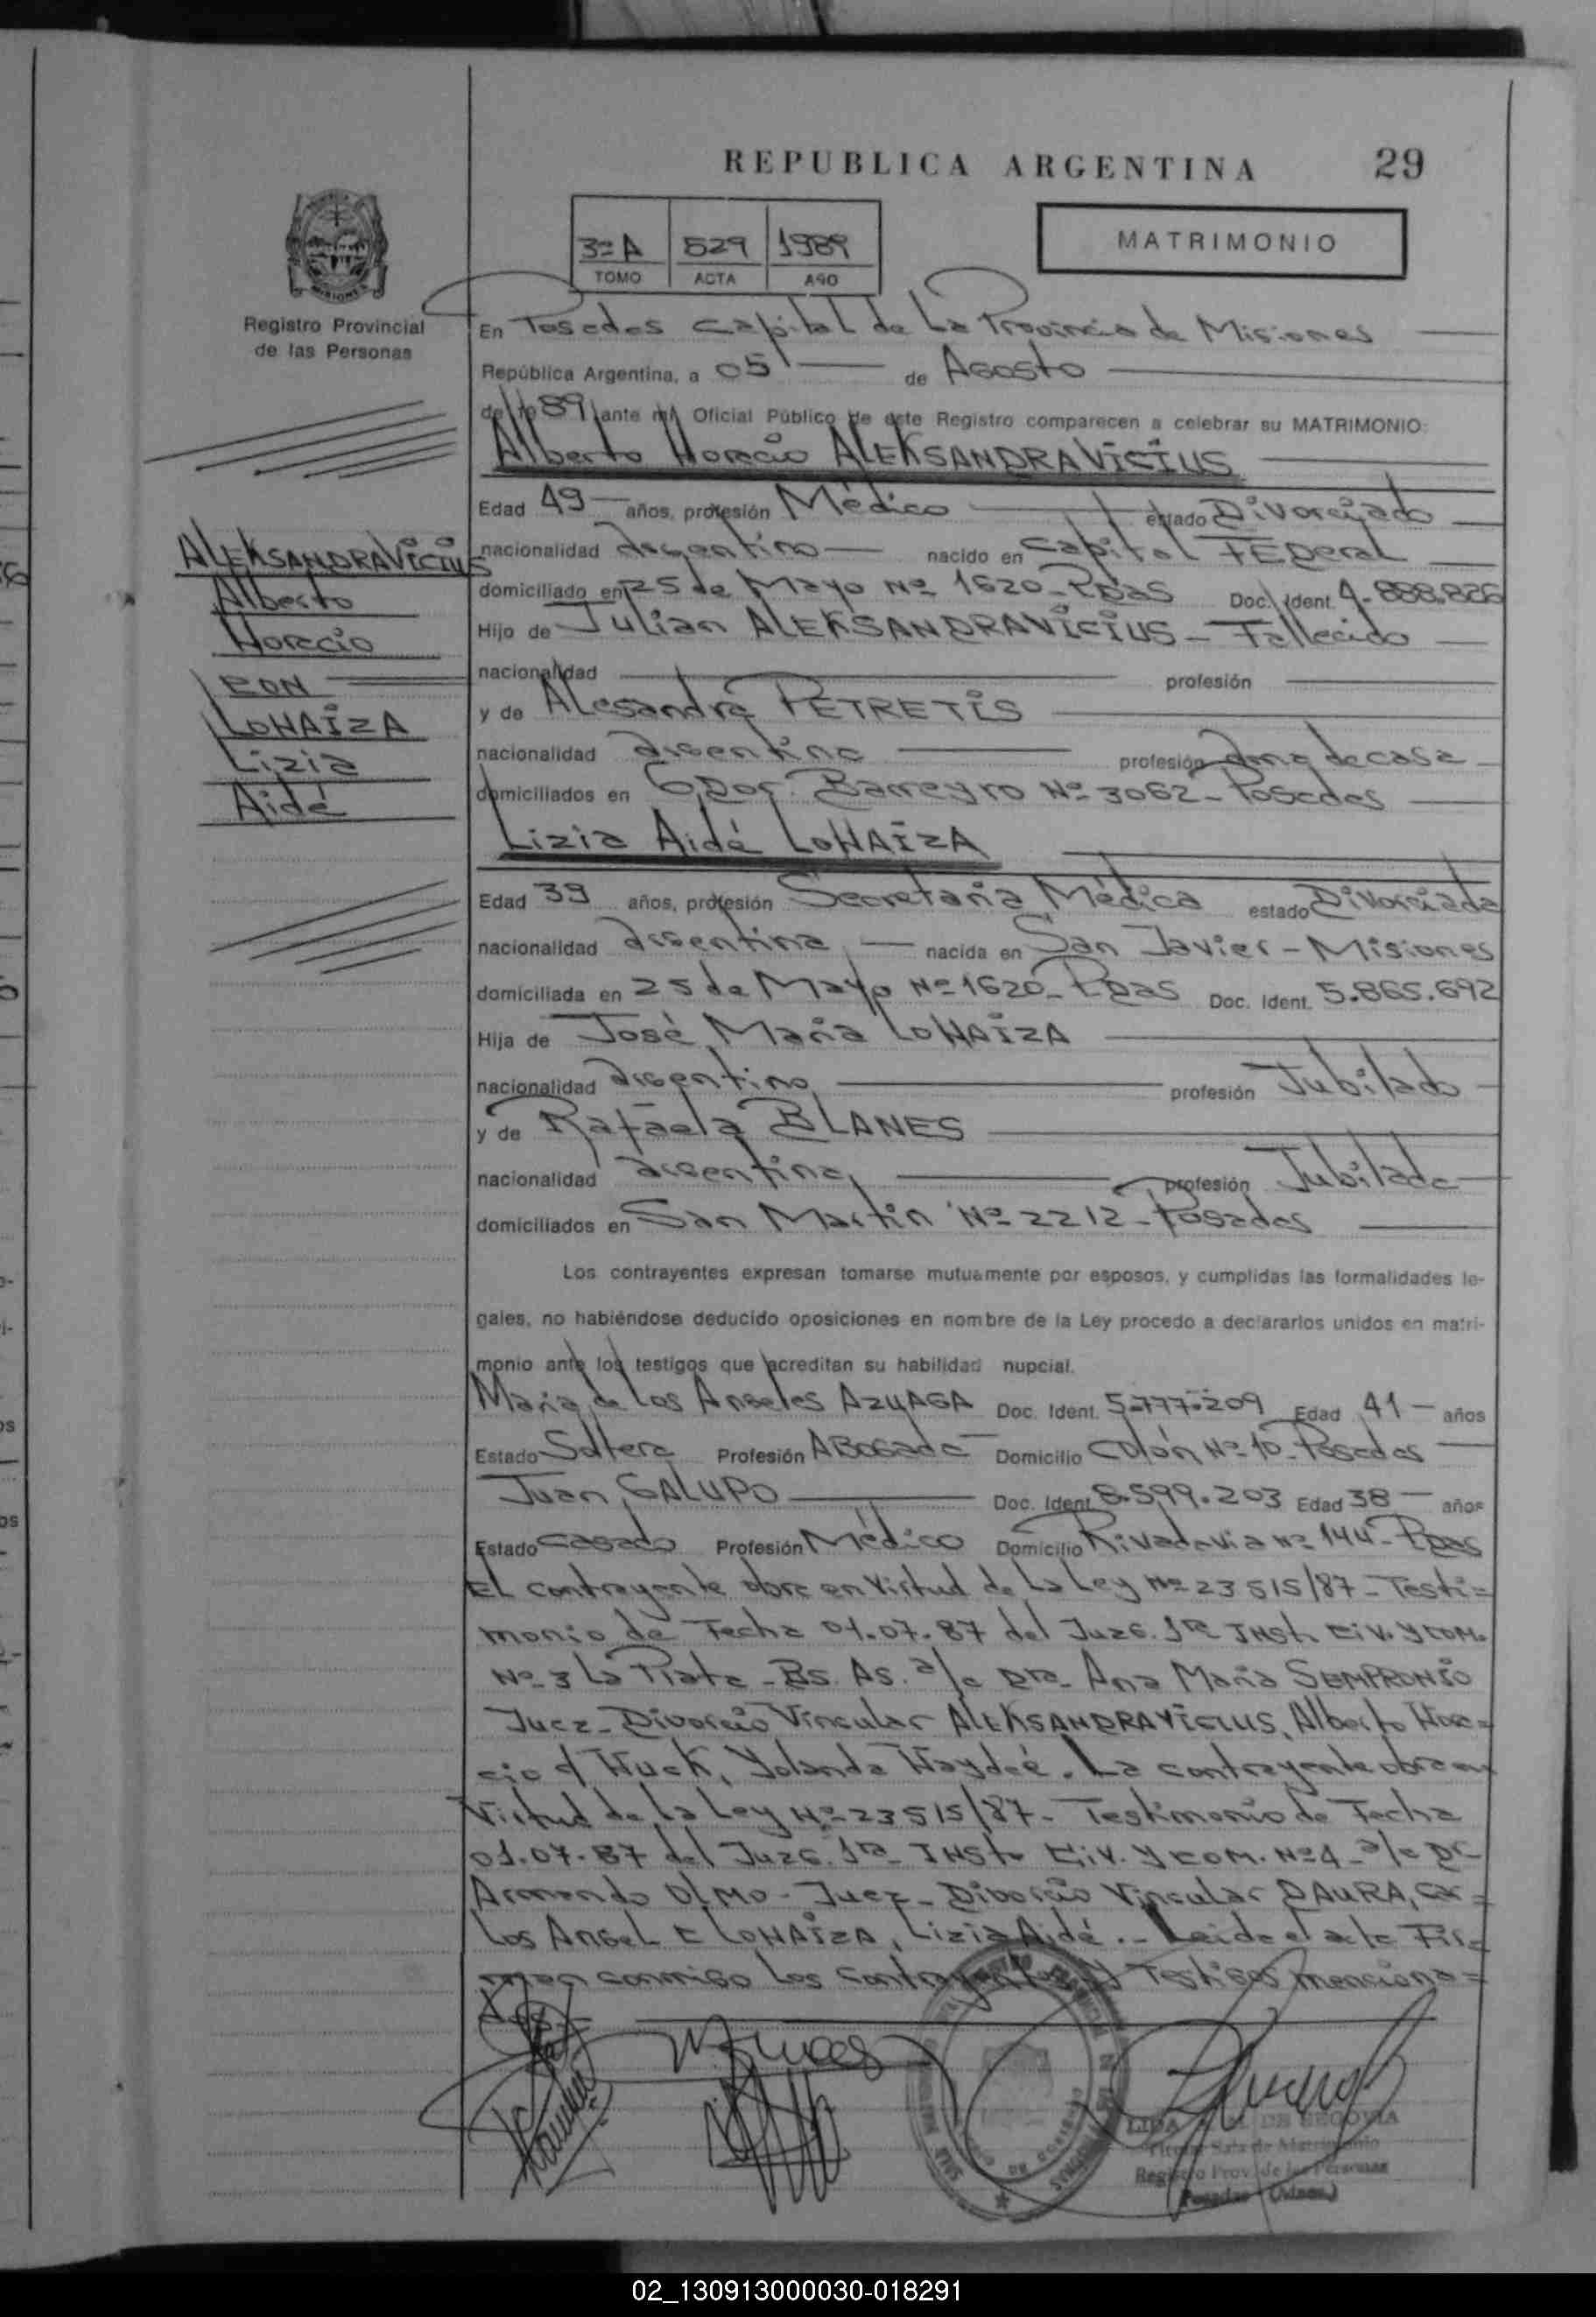 REPUBLICA ARGENTINA 29
3º A 529 1989
TOMO ACTA AÑO
MATRIMONIO
MISIONES
Registro Provincial
de las Personas
En Posadas Capital de La Provincia de Misiones
República Argentina, a 05 de Agosto
de 19 89 ante mí, Oficial Público de este Registro comparecen a celebrar su MATRIMONIO:
Alberto Horacio ALEKSANDRAVICIUS
Edad 49 años, profesión Médico estado Divorciado
nacionalidad argentino nacido en Capital FEDeral
domiciliado en 25 de Mayo Nº 1620 - Pdas Doc. Ident. 4.888.826
Hijo de Julian ALEKSANDRAVICIUS - Fallecido
nacionalidad profesión
y de Alesandra PETRETIS
nacionalidad argentina profesión ama de casa
domiciliados en Gdor. Barreyro Nº 3062 - Posadas
Lizia Aidé LOHAIZA
Edad 39 años, profesión Secretaria Médica estado Divorciada
nacionalidad argentina nacida en San Javier - Misiones
domiciliada en 25 de Mayo Nº 1620 - Pdas Doc. Ident. 5.865.692
Hija de José Maria LOHAIZA
nacionalidad argentino profesión Jubilado
y de Rafaela BLANES
nacionalidad argentina profesión Jubilada
domiciliados en San Martin Nº 2212 - Posadas
ALEKSANDRAVICIUS
Alberto
Horacio
CON
LOHAIZA
Lizia
Aidé
Los contrayentes expresan tomarse mutuamente por esposos, y cumplidas las formalidades le-
gales, no habiéndose deducido oposiciones en nombre de la Ley procedo a declararlos unidos en matri-
monio ante los testigos que acreditan su habilidad nupcial.
Maria de Los Angeles AZUAGA Doc. Ident. 5.777.209 Edad 41 años
Estado Soltera Profesión ABOGada Domicilio Colón Nº 10 - Posadas
Juan GALUPO Doc. Ident. 8.599.203 Edad 38 años
Estado Casado Profesión Médico Domicilio Rivadavia Nº 144 - Pdas
El contrayente obra en Virtud de La Ley Nº 23515/87 - Testi=
monio de Fecha 01.07.87 del Juzg. 1ra INSt. Civ. y COM.
Nº 3 La Plata - BS. AS. a/c Dra. Ana Maria SEMPRONIO
Juez - Divorcio Vincular ALEKSANDRAVICIUS, Alberto Hora=
cio c/ Huck, Yolanda Haydeé. La contrayente obra en
Virtud de la Ley Nº 23515/87 - Testimonio de Fecha
01.07.87 del Juzg. 1ra INSt. Civ. y COM. Nº 4 - a/c Dr.
Armando OLMO - Juez - Divorcio Vincular DAURA, Car=
los Angel c LOHAIZA, Lizia Aidé. - Leida el acta Fir=
man conmigo Los contrayentes y Testigos menciona=
dos.
DE SEGOVIA
Titular Sala de Matrimonio
Registro Prov. de las Personas
Posadas (Mnes.)
02_130913000030-018291